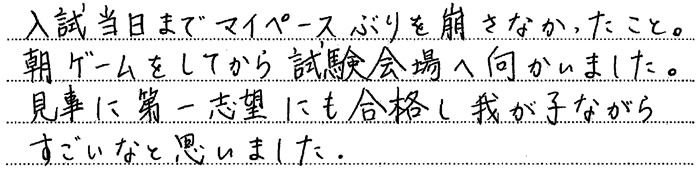 入試当日までマイペースぶりを崩さなかったこと。
朝ゲームをしてから試験会場へ向かいました。
見事に第一志望にも合格し我が子ながら
すごいなと思いました.